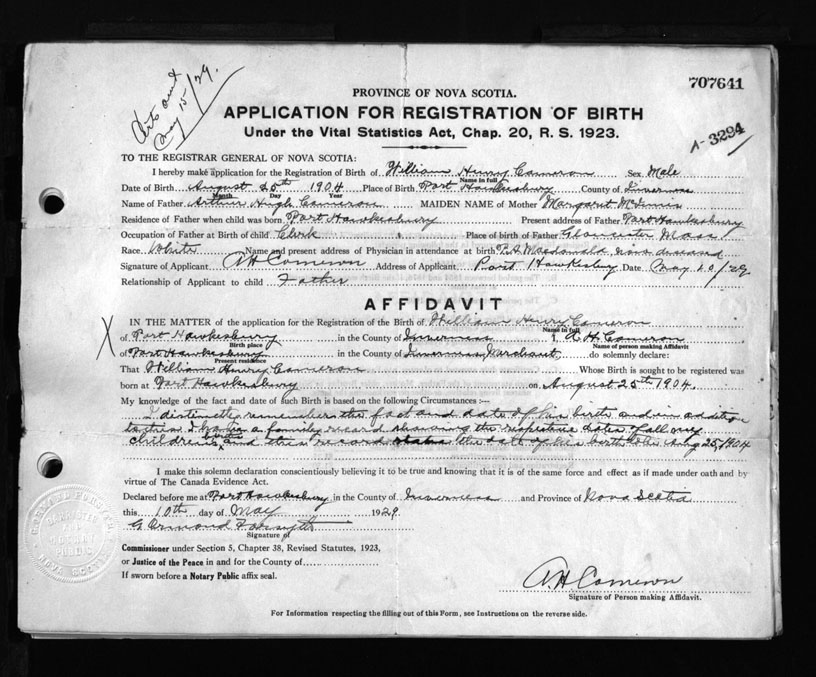 May 15/29.
707641
PROVINCE OF NOVA SCOTIA.
APPLICATION FOR REGISTRATION OF BIRTH
Under the Vital Statistics Act, Chap. 20, R. S. 1923.
A-3294
TO THE REGISTRAR GENERAL OF NOVA SCOTIA:
I hereby make application for the Registration of Birth of William Henry Cameron Sex Male
Name in full
Date of Birth August 25th 1904 Place of Birth Port Hawkesbury County of Inverness
Month Day Year
Name of Father Arthur Hugh Cameron MAIDEN NAME of Mother Margaret McInnis
Residence of Father when child was born Port Hawkesbury Present address of Father Port Hawkesbury
Occupation of Father at Birth of child Clerk Place of birth of Father Gloucester Mass
Race White Name and present address of Physician in attendance at birth P. A. Macdonald, now deceased
Signature of Applicant A H Cameron Address of Applicant Port Hawkesbury Date May 10/29
Relationship of Applicant to child Father
AFFIDAVIT
IN THE MATTER of the application for the Registration of the Birth of William Henry Cameron
Name in full
X of Port Hawkesbury in the County of Inverness I, A. H. Cameron
Birth place Name of person making Affidavit
of Port Hawkesbury in the County of Inverness, Merchant, do solemnly declare:
Present residence
That William Henry Cameron Whose Birth is sought to be registered was
born at Port Hawkesbury on August 25th 1904.
My knowledge of the fact and date of such Birth is based on the following Circumstances :—
I distinctly remember the fact and date of his birth and in addition
to this I have a family record showing the respective dates of all my
children's births and this record states the date of his birth to be Aug 25, 1904
I make this solemn declaration conscientiously believing it to be true and knowing that it is of the same force and effect as if made under oath and by
virtue of The Canada Evidence Act.
Declared before me at Port Hawkesbury in the County of Inverness and Province of Nova Scotia
this 10th day of May 1929
G Ormond Forsyth
Signature of
Commissioner under Section 5, Chapter 38, Revised Statutes, 1923,
or Justice of the Peace in and for the County of
If sworn before a Notary Public affix seal.
A H Cameron
Signature of Person making Affidavit.
For Information respecting the filling out of this Form, see Instructions on the reverse side.